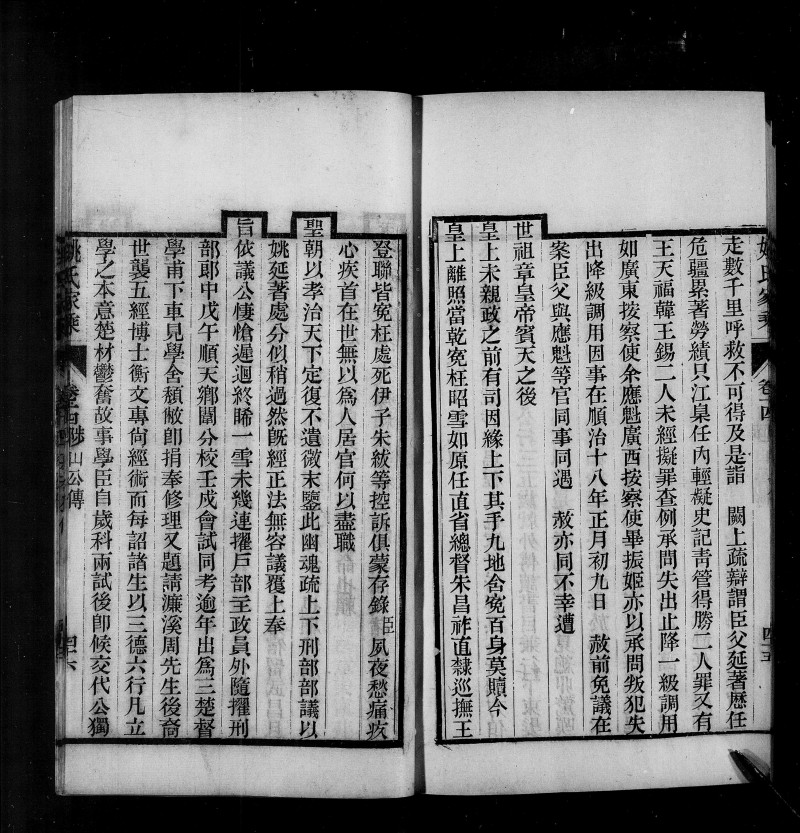 姚氏家乘
卷十四
四十五
走數千里呼救不可得及是詣 闕上疏辯謂臣父延著歷任
危疆累著勞績只江臬任內輕擬史記青管得勝二人罪又有
王天福韓王錫二人未經擬罪查例承問失出止降一級調用
如廣東按察使佘應魁廣西按察使畢振姬亦以承問叛犯失
出降級調用因事在順治十八年正月初九日 赦前免議在
案臣父與應魁等官同事同遇 赦亦同不幸遭
世祖章皇帝賓天之後
皇上未親政之前有司因緣上下其手九地含寃百身莫贖今
皇上離照當乾寃枉昭雪如原任直省總督朱昌祚直隸巡撫王
登聯皆寃枉處死伊子朱紱等控訴俱蒙存錄臣夙夜愁痛疚
心疾首在世無以爲人居官何以盡職
聖朝以孝治天下定復不遺微末鑒此幽魂疏上下刑部部議以
姚延著處分似稍過然旣經正法無容議覆上奉
旨依議公悽愴遲迴終睎一雪未幾連擢戶部主政員外隨擢刑
部郎中戊午順天鄉闈分校壬戌會試同考逾年出爲三楚督
學甫下車見學舍頹敝卽捐奉修理又題請濂溪周先生後裔
世襲五經博士衡文專尙經術而每詔諸生以三德六行凡立
學之本意楚材鬱奮故事學臣自歲科兩試後卽候交代公獨
姚氏家乘
卷十四
陟山公傳
四十六